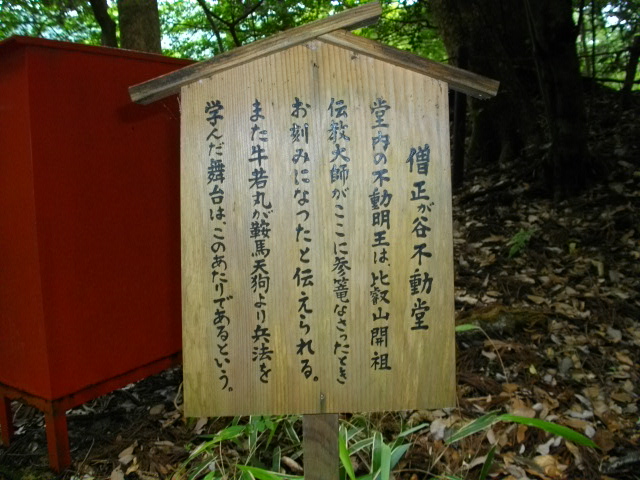 僧正が谷不動堂
堂内の不動明王は、比叡山開祖
伝教大師がここに参篭なさったとき
お刻みになったと伝えられる。
また牛若丸が鞍馬天狗より兵法を
学んだ舞台は、このあたりであるという。